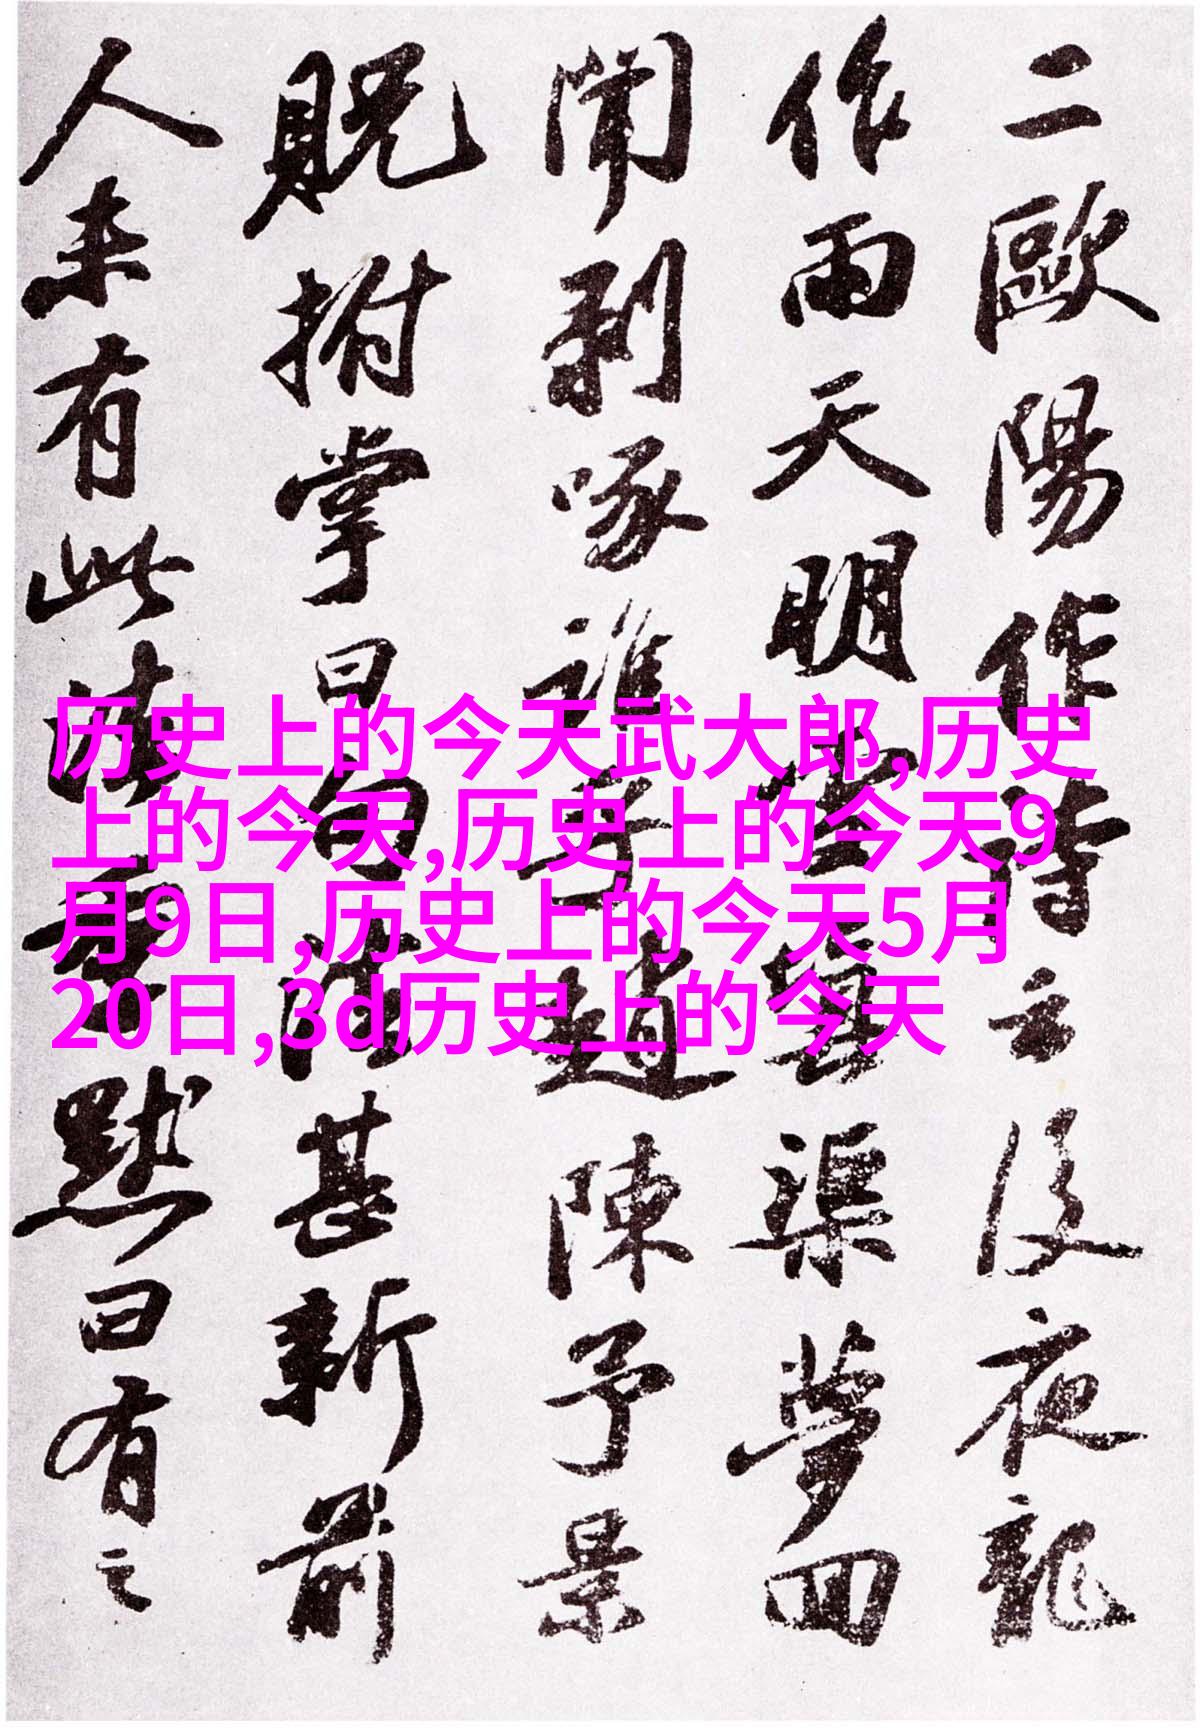 二歐陽作詩云後夜龍
作雨天明雪填渠夢回
聞剥啄誰乎趙陳予景
貺拊掌曰句法甚新前
人未有此法季默曰有之
历史上的今天武大郎,历史
上的今天,历史上的今天9
月9日,历史上的今天5月
20日,3d历史上的今天